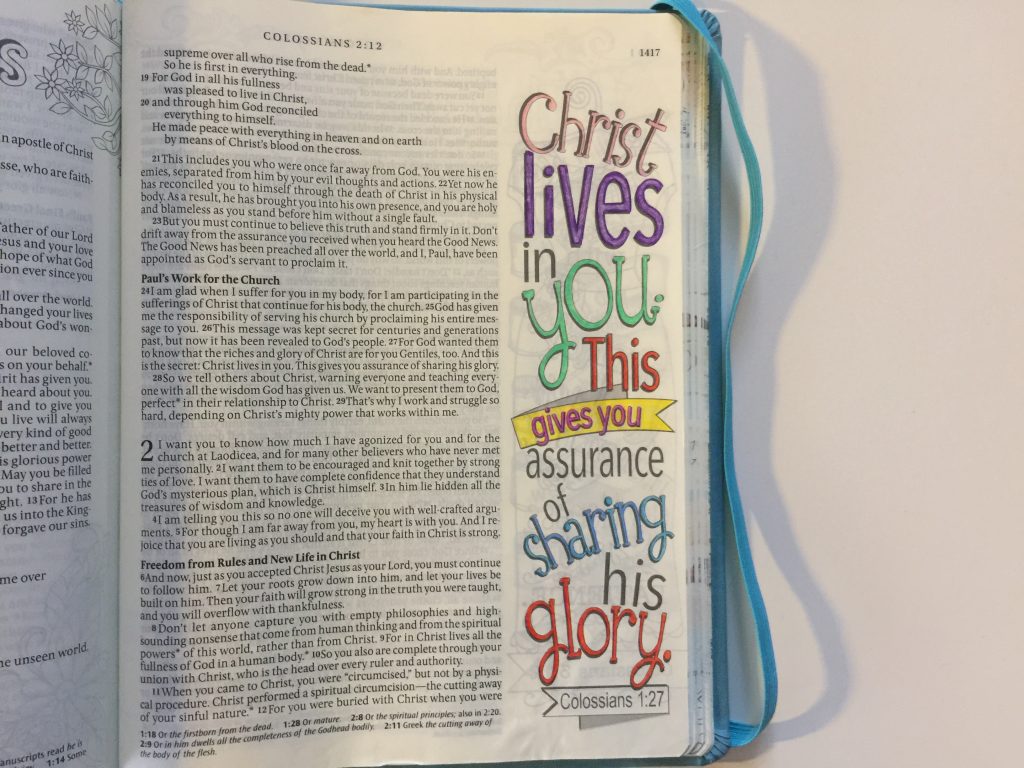 s
n apostle of Christ
sse, who are faith-
ather of our Lord
esus and your love
hope of what God
ion ever since you
ll over the world.
hanged your lives
about God's won-
our beloved co-
s on your behalf.*
irit has given you.
heard about you.
l and to give you
u live will always
very kind of good
better and better.
is glorious power
May you be filled
ou to share in the
ght. 13 For he has
us into the King-
forgave our sins.
me over
he unseen world.
anuscripts read he is
1:14 Some
COLOSSIANS 2:12
1417
supreme over all who rise from the dead.*
So he is first in everything.
19 For God in all his fullness
was pleased to live in Christ,
20 and through him God reconciled
everything to himself.
He made peace with everything in heaven and on earth
by means of Christ's blood on the cross.
21 This includes you who were once far away from God. You were his en-
emies, separated from him by your evil thoughts and actions. 22 Yet now he
has reconciled you to himself through the death of Christ in his physical
body. As a result, he has brought you into his own presence, and you are holy
and blameless as you stand before him without a single fault.
23 But you must continue to believe this truth and stand firmly in it. Don't
drift away from the assurance you received when you heard the Good News.
The Good News has been preached all over the world, and I, Paul, have been
appointed as God's servant to proclaim it.
Paul's Work for the Church
24 I am glad when I suffer for you in my body, for I am participating in the
sufferings of Christ that continue for his body, the church. 25 God has given
me the responsibility of serving his church by proclaiming his entire mes-
sage to you. 26 This message was kept secret for centuries and generations
past, but now it has been revealed to God's people. 27 For God wanted them
to know that the riches and glory of Christ are for you Gentiles, too. And this
is the secret: Christ lives in you. This gives you assurance of sharing his glory.
28 So we tell others about Christ, warning everyone and teaching every-
one with all the wisdom God has given us. We want to present them to God,
perfect* in their relationship to Christ. 29 That's why I work and struggle so
hard, depending on Christ's mighty power that works within me.
2 I want you to know how much I have agonized for you and for the
church at Laodicea, and for many other believers who have never met
me personally. 2 I want them to be encouraged and knit together by strong
ties of love. I want them to have complete confidence that they understand
God's mysterious plan, which is Christ himself. 3 In him lie hidden all the
treasures of wisdom and knowledge.
4 I am telling you this so no one will deceive you with well-crafted argu-
ments. 5 For though I am far away from you, my heart is with you. And I re-
joice that you are living as you should and that your faith in Christ is strong.
Freedom from Rules and New Life in Christ
6 And now, just as you accepted Christ Jesus as your Lord, you must continue
to follow him. 7 Let your roots grow down into him, and let your lives be
built on him. Then your faith will grow strong in the truth you were taught,
and you will overflow with thankfulness.
8 Don't let anyone capture you with empty philosophies and high-
sounding nonsense that come from human thinking and from the spiritual
powers* of this world, rather than from Christ. 9 For in Christ lives all the
fullness of God in a human body.* 10 So you also are complete through your
union with Christ, who is the head over every ruler and authority.
11 When you came to Christ, you were "circumcised," but not by a physi-
cal procedure. Christ performed a spiritual circumcision—the cutting away
of your sinful nature.* 12 For you were buried with Christ when you were
1:18 Or the firstborn from the dead. 1:28 Or mature. 2:8 Or the spiritual principles; also in 2:20.
2:9 Or in him dwells all the completeness of the Godhead bodily. 2:11 Greek the cutting away of
the body of the flesh.
Christ
lives
in
you.
This
gives you
assurance
of
sharing
his
glory.
Colossians 1:27